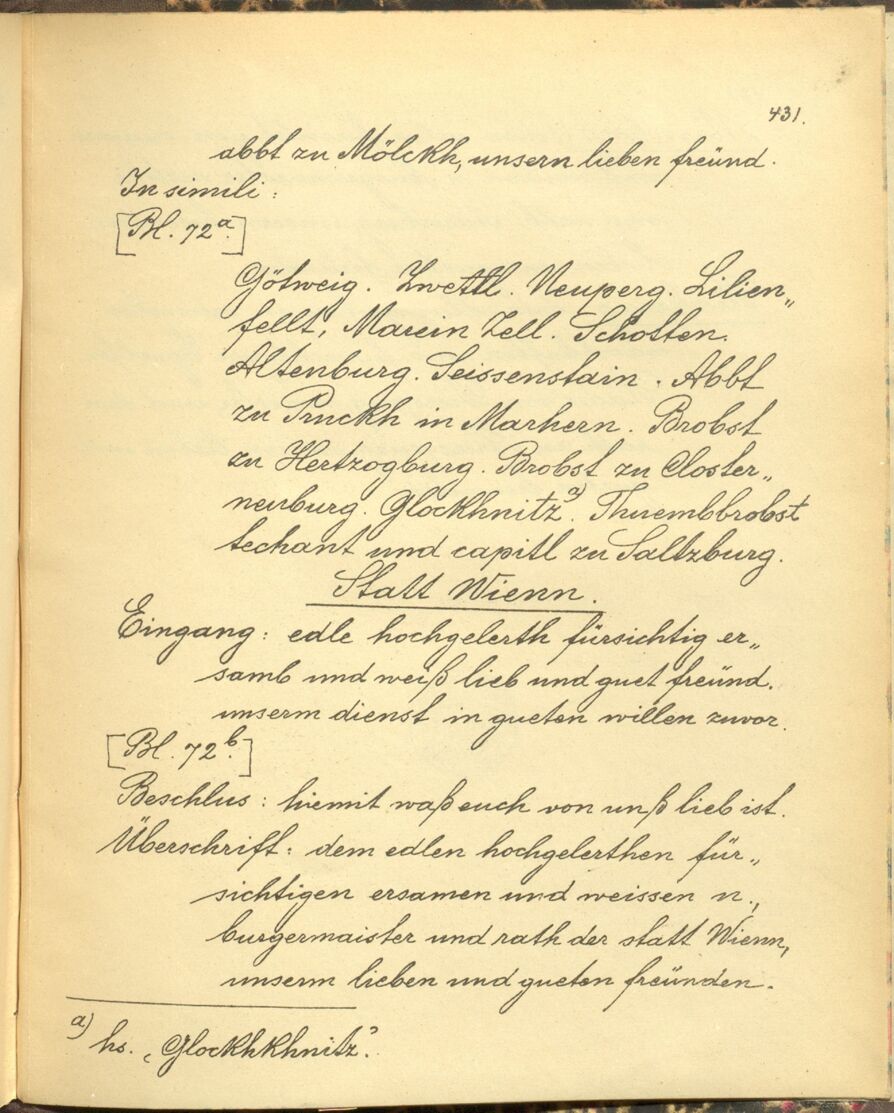 431.
abbt zu Mölckh, unsern lieben freünd.
In simili:
[Bl. 72a.]
Götweig. Zwettl. Neuperg. Lilien„
fellt, Marein Zell. Schotten.
Altenburg. Seissenstain. Abbt
zu Pruckh in Marhern. Brobst
zu Hertzogburg. Brobst zu Closter„
neuburg. Glockhnitz a). Thuembbrobst
techant und capitl zu Saltzburg.
Statt Wienn.
Eingang: edle hochgelerth fürsichtig er„
samb und weiß lieb und guet freünd.
unserm dienst in gueten willen zuvor.
[Bl. 72b.]
Beschlus: hiemit waß euch von unß lieb ist.
Überschrift: dem edlen hochgelerthen für„
sichtigen ersamen und weissen n.,
burgermaister und rath der statt Wienn,
unserm lieben und gueten freünden.
a) hs. ‚Glockhkhnitz‘.